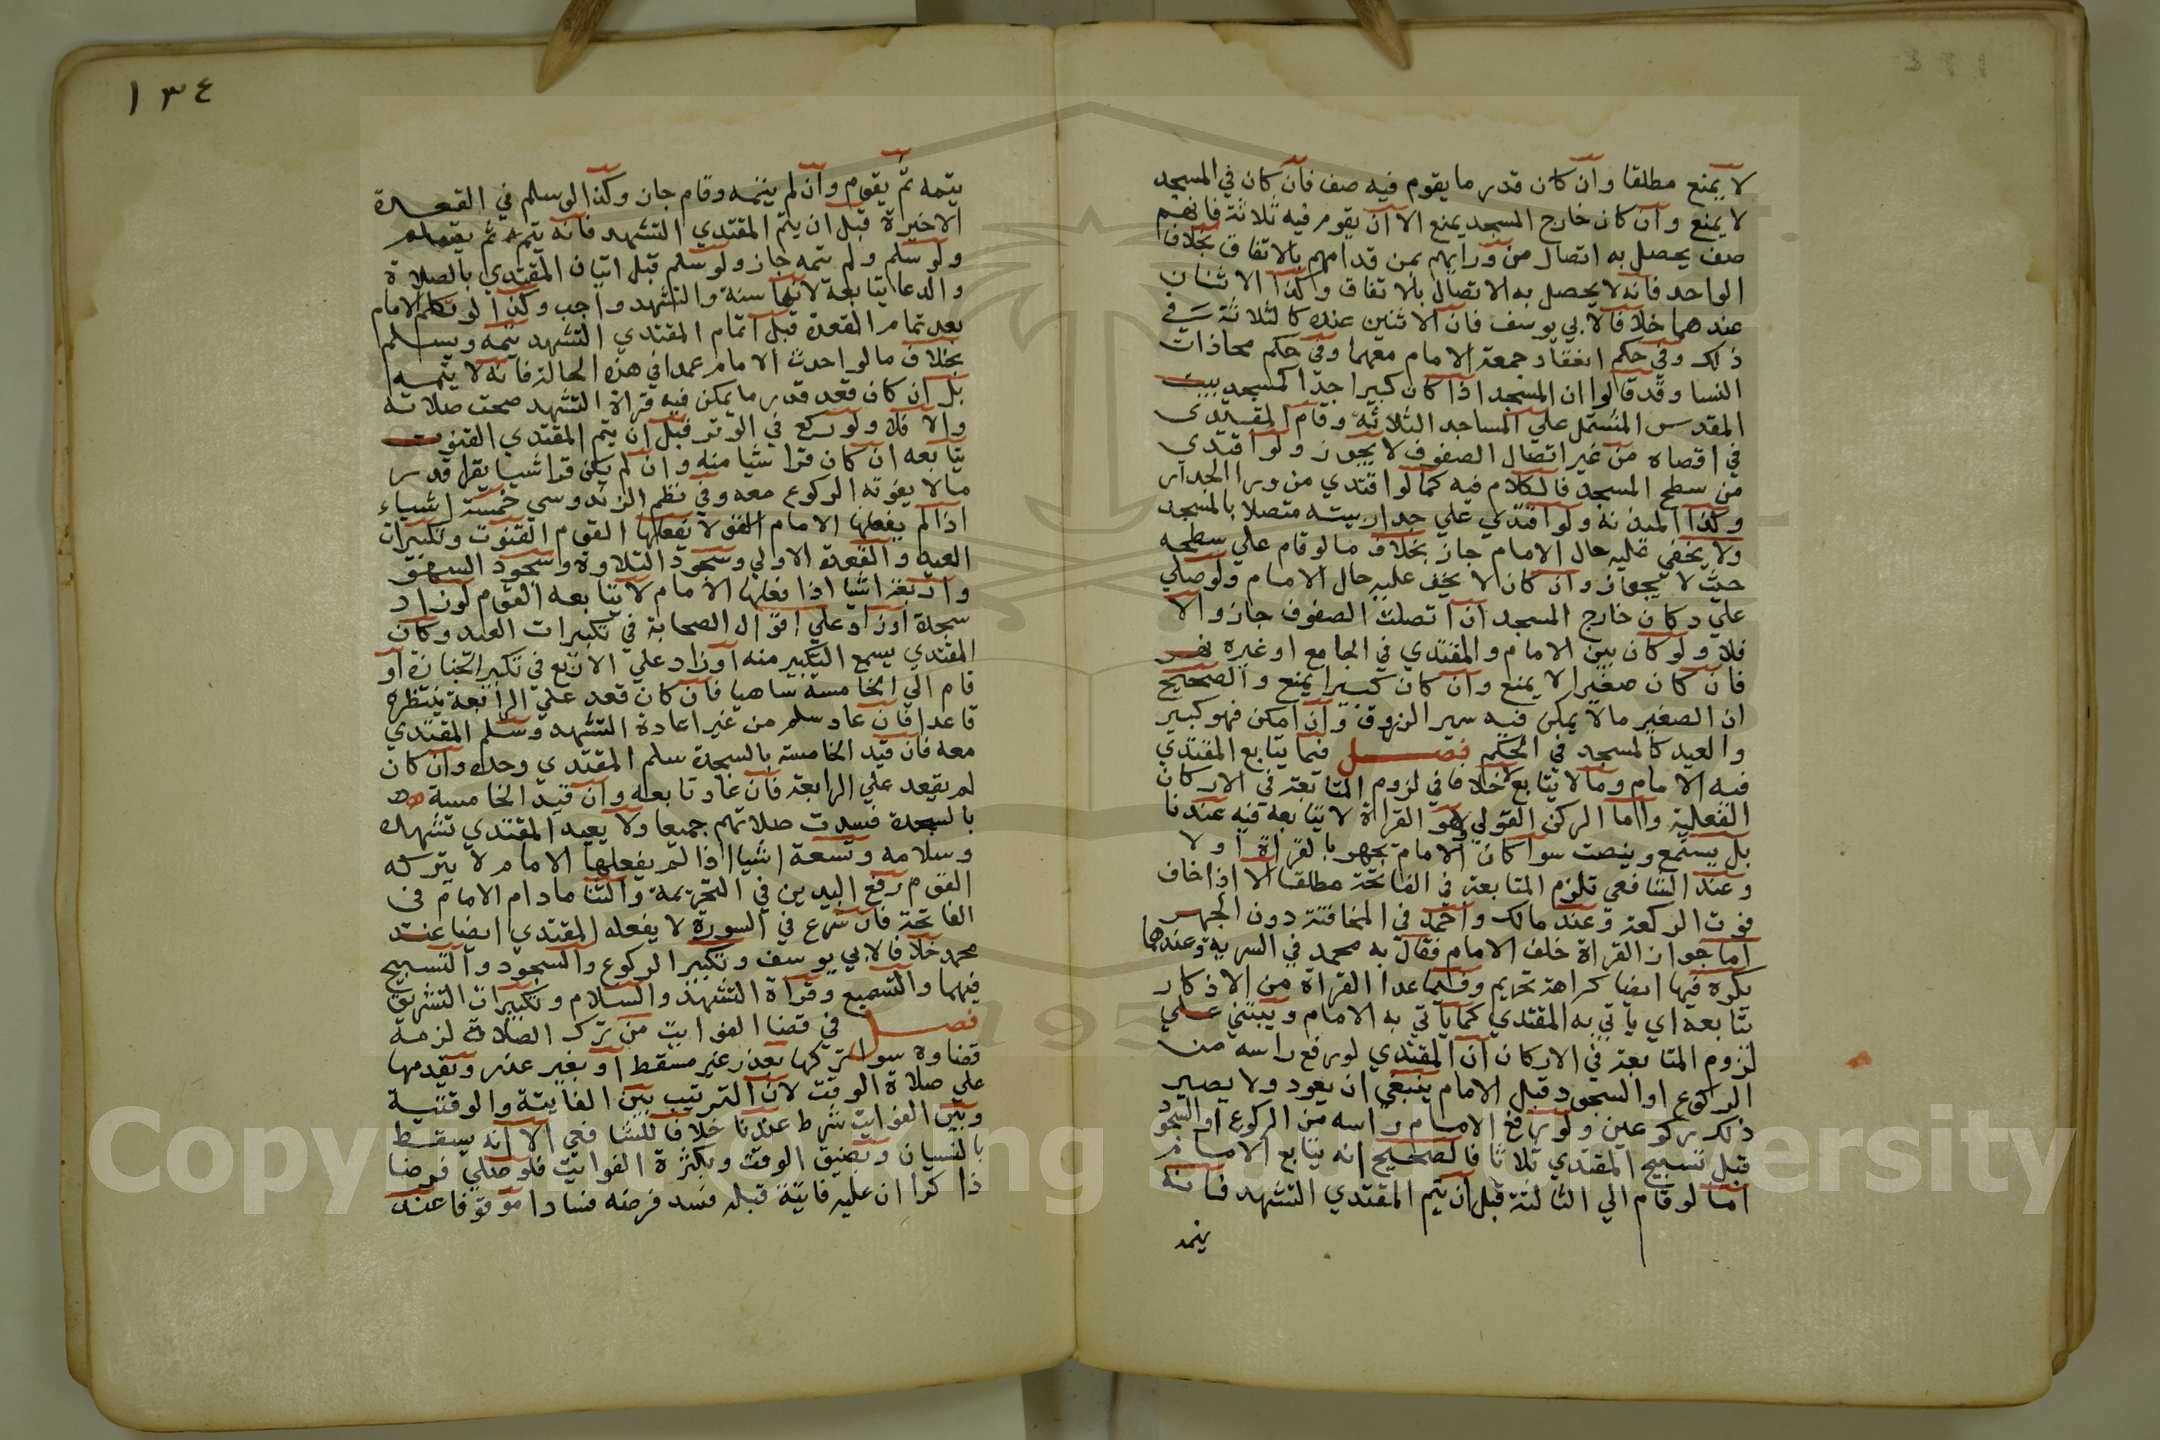 لا يمنع مطلقا وان كان قدر ما يقوم فيه صف فان كان في المسجد
لا يمنع وان كان خارج المسجد يمنع الا ان يقوم فيه ثلاثة فانهم
صف يحصل به اتصال من ورايهم بمن قدامهم بالاتفاق بخلاف
الواحد فانه لا يحصل به الاتصال بالاتفاق وكذا الاثنان
عندهما خلافا لابي يوسف فان الاثنين عنده كالثلاثة في
ذلك وفي حكم انعقاد جمعة الامام معهما وفي حكم محاذات
النسا وقد قالوا ان المسجد اذا كان كبيرا جدا كمسجد بيت
المقدس المشتمل علي المساجد الثلاثة وقام المقتدي
في اقصاه من غير اتصال الصفوف لا يجوز ولو اقتدي
من سطح المسجد فالكلام فيه كما لو اقتدي من ورا الجدار
وكذا المئذنة ولو اقتدي علي جدار بيته متصلا بالمسجد
ولا يخفي عليه حال الامام جاز بخلاف ما لو قام علي سطحه
حيث لا يجوز وان كان لا يخف عليه حال الامام ولو صلي
علي دكان خارج المسجد ان اتصلت الصفوف جاز والا
فلا ولو كان بين الامام والمقتدي في الجامع او غيره نهر
فان كان صغيرا لا يمنع وان كان كبيرا يمنع والصحيح
ان الصغير ما لا يمكن فيه سير الزورق وان امكن فهو كبير
والعيد كالمسجد في الحكم فصل فيما يتابع المقتدي
فيه الامام وما لا يتابع لا خلاف في لزوم المتابعة في الاركان
الفعلية واما الركن القولي وهو القراة لا يتابعه فيه عندنا
بل يستمع وينصت سوا كان الامام يجهر بالقراة او لا
وعند الشافعي تلزم المتابعة في الفاتحة مطلقا الا اذا خاف
فوت الركعة وعند مالك واحمد في المخافتة دون الجهر
اما جواز القراة خلف الامام فقال به محمد في السرية وعندهما
يكره فيها ايضا كراهة تحريم وفيما عدا القراة من الاذكار
يتابعه اي ياتي به المقتدي كما ياتي به الامام ويبتني علي
لزوم المتابعة في الاركان ان المقتدي لو رفع راسه من
الركوع او السجود قبل الامام ينبغي ان يعود ولا يصير
ذلك ركوعين ولو رفع الامام راسه من الركوع او السجود
قبل تسبيح المقتدي ثلاثا فالصحيح انه يتابع الامام
اما لو قام الي الثالثة قبل ان يتم المقتدي التشهد فانه
يتمه
١٣٤
يتمه ثم يقوم وان لم يتمه وقام جاز وكذا لو سلم في القعدة
الاخيرة قبل ان يتم المقتدي التشهد فانه يتمه ثم يسلم
ولو سلم ولم يتمه جاز ولو سلم قبل اتيان المقتدي بالصلاة
والدعا يتابعه لانها سنة والتشهد واجب وكذا لو تكلم الامام
بعد تمام القعدة قبل اتمام المقتدي التشهد يتمه ويسلم
بخلاف ما لو احدث الامام عمدا في هذه الحالة فانه لا يتمه
بل ان كان قعد قدر ما يمكن فيه قراة التشهد صحت صلاته
والا فلا ولو ركع في الوتر قبل ان يتم المقتدي القنوت
يتابعه ان كان قرا شيا منه وان لم يكن قرا شيا يقرا قدر
ما لا يفوته الركوع معه وفي نظم الزندوسي خمسة اشياء
اذا لم يفعلها الامام لا يفعلها القوم القنوت وتكبيرات
العيد والقعدة الاولي وسجود التلاوة وسجود السهو
واربعة اشيا اذا فعلها الامام لا يتابعه القوم لو زاد
سجدة او زاد علي اقوال الصحابة في تكبيرات العيد وكان
المقتدي يسمع التكبير منه او زاد علي الاربع في تكبير الجنازة او
قام الي الخامسة ساهيا فان كان قعد علي الرابعة ينتظره
قاعدا فان عاد سلم من غير اعادة التشهد وسلم المقتدي
معه فان قيد الخامسة بالسجدة سلم المقتدي وحده وان كان
لم يقعد علي الرابعة فان عاد تابعه وان قيد الخامسة
بالسجدة فسدت صلاتهم جميعا ولا يعيد المقتدي تشهده
وسلامه وتسعة اشيا اذا لم يفعلها الامام لا يتركه
القوم رفع اليدين في التحريمة والثنا مادام الامام في
الفاتحة فان شرع في السورة لا يفعله المقتدي ايضا عند
محمد خلافا لابي يوسف وتكبير الركوع والسجود والتسبيح
فيهما والتسميع وقراة التشهد والسلام وتكبيرات التشريق
فصل في قضا الفوايت من ترك الصلاة لزمه
قضاوه سوا تركها بعذر غير مسقط او بغير عذر ويقدمها
علي صلاة الوقت لان الترتيب بين الفايتة والوقتية
وبين الفوايت شرط عندنا خلافا للشافعي الا انه يسقط
بالنسيان وتضيق الوقت وبكثرة الفوايت فلو صلي فرضا
ذاكرا ان عليه فايتة قبله فسد فرضه فسادا موقوفا عند